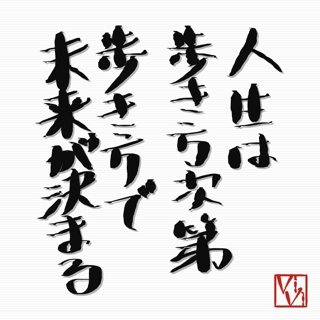 人生は
歩き方次第
歩き方で
未来が決まる